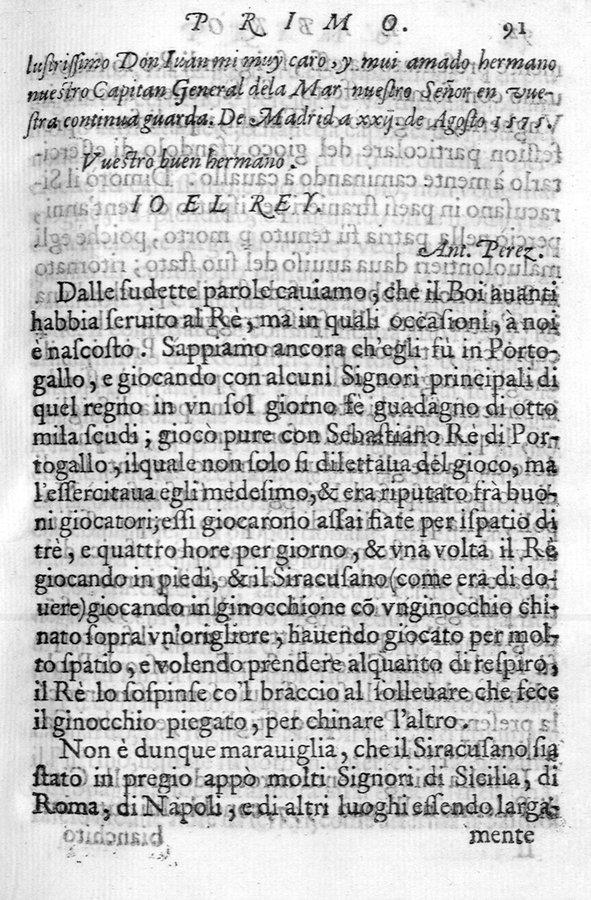 PRIMO. 91
lustrissimo Don Iuan mi muy caro, y mui amado hermano
nuestro Capitan General dela Mar nuestro Señor en vue-
stra continua guarda. De Madrid a xxij. de Agosto 1575.
Vuestro buen hermano.
IO EL REY.
Ant. Perez.
Dalle sudette parole cauiamo, che il Boi auanti
habbia seruito al Rè, ma in quali occasioni, à noi
è nascosto. Sappiamo ancora ch'egli fù in Porto-
gallo, e giocando con alcuni Signori principali di
quel regno in vn sol giorno fè guadagno di otto
mila scudi; giocò pure con Sebastiano Rè di Por-
togallo, ilquale non solo si dilettaua del gioco, ma
l'essercitaua egli medesimo, & era riputato frà buo-
ni giocatori; essi giocarono assai fiate per ispatio di
trè, e quattro hore per giorno, & vna volta il Rè
giocando in piedi, & il Siracusano (come era di do-
uere) giocando in ginocchione cō vn ginocchio chi-
nato sopra vn'origliere, hauendo giocato per mol-
to spatio, e volendo prendere alquanto di respiro,
il Rè lo sospinse co'l braccio al solleuare che fece
il ginocchio piegato, per chinare l'altro.
Non è dunque marauiglia, che il Siracusano sia
stato in pregio appò molti Signori di Sicilia, di
Roma, di Napoli, e di altri luoghi essendo larga-
mente